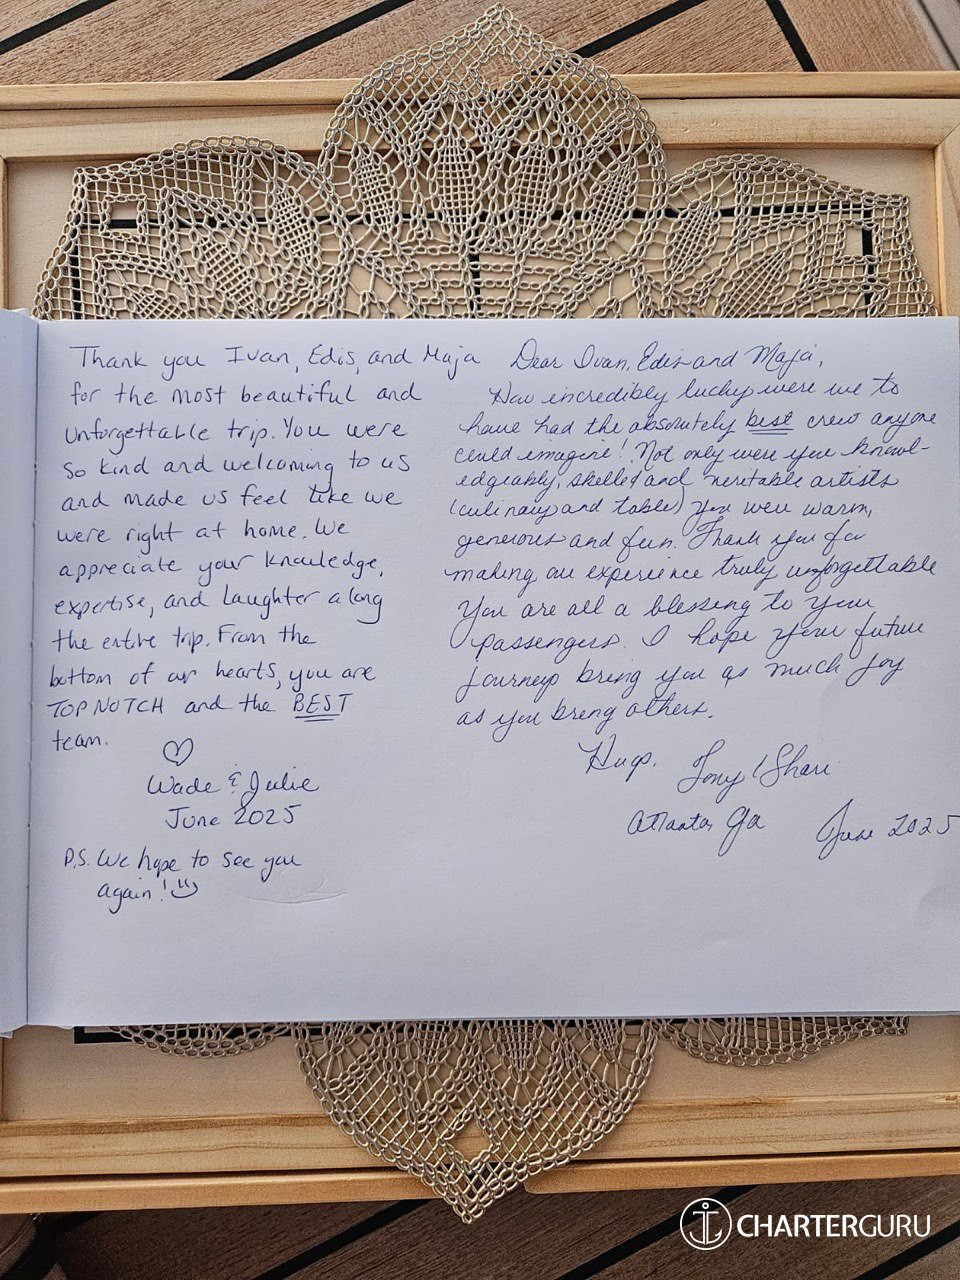 Thank you Ivan, Edis, and Maja
for the most beautiful and
unforgettable trip. You were
so kind and welcoming to us
and made us feel like we
were right at home. We
appreciate your knowledge,
expertise, and laughter along
the entire trip. From the
bottom of our hearts, you are
TOP NOTCH and the BEST
team.
Wade & Julie
June 2025
P.S. We hope to see you
again!
Dear Ivan, Edis and Maja,
How incredibly lucky were we to
have had the absolutely best crew anyone
could imagine! Not only were you knowl-
edgeably, skilled and veritable artists
(culinary and table) you were warm,
generous and fun. Thank you for
making our experience truly unforgettable
You are all a blessing to your
passengers. I hope your future
journeys bring you as much joy
as you bring others.
Hugs,
Tony / Shari
Atlanta, Ga
June 2025
CHARTERGURU